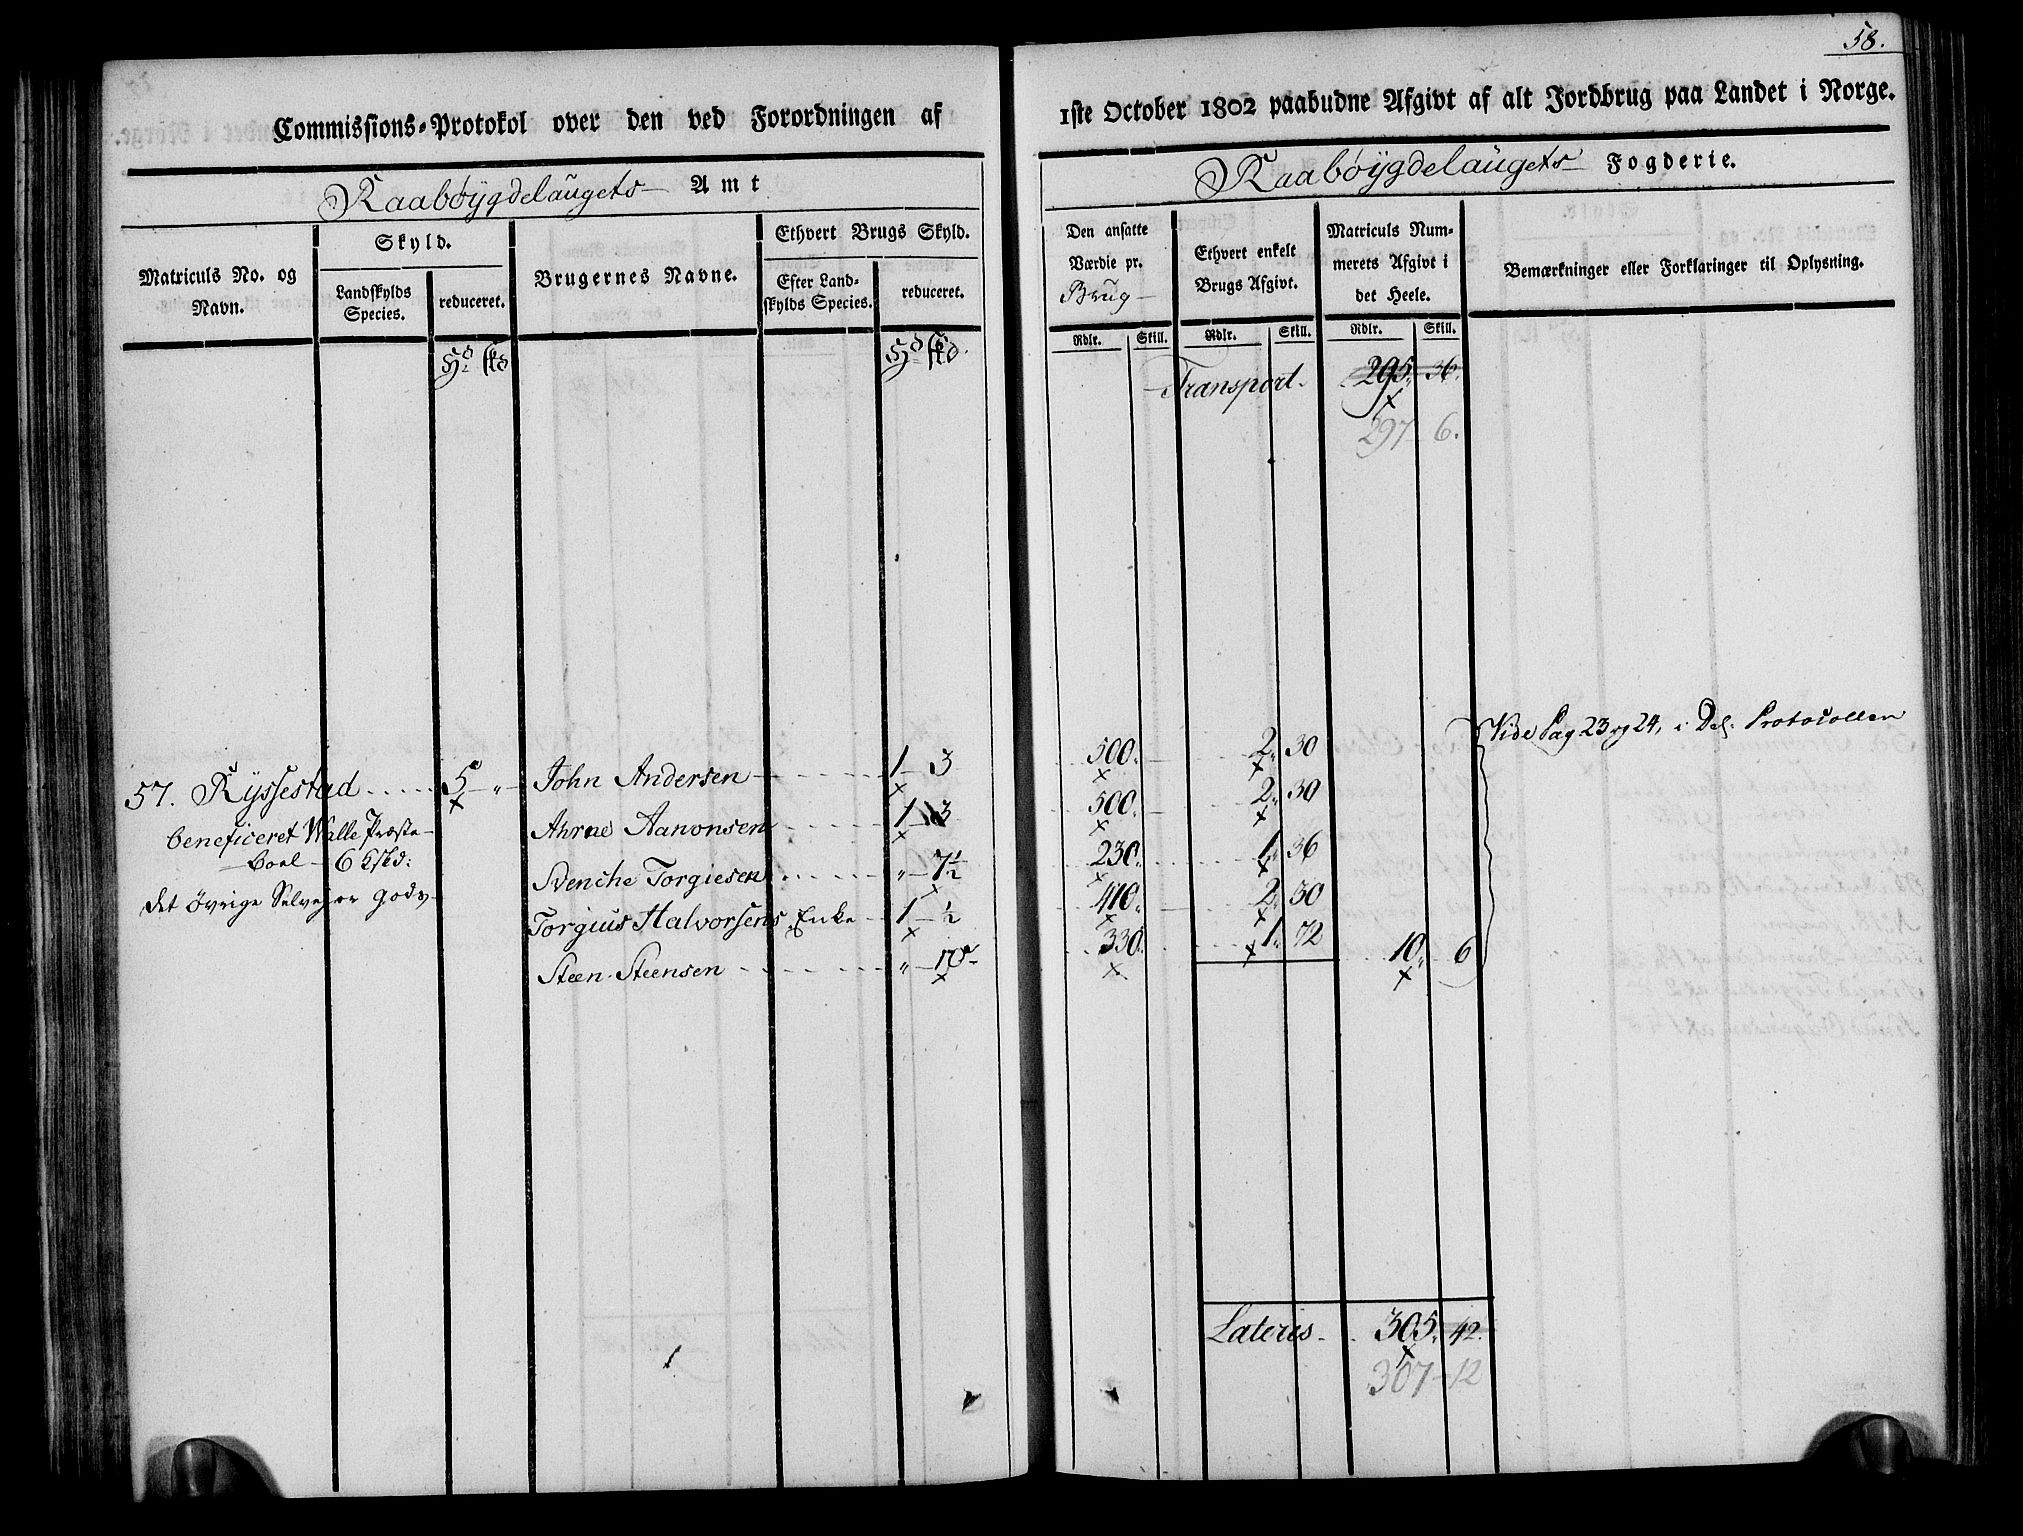 58.
Commissions-Protokol over den ved Forordningen af 1ste October 1802 paabudne Afgivt af alt Jordbrug paa Landet i Norge.
Raabøygdelaugets Amt
Raabøygdelaugets Fogderie.
Matriculs No. og Navn.
Skyld.
Landskylds Species.
reduceret.
Brugernes Navne.
Ethvert Brugs Skyld.
Efter Landskylds Species.
reduceret.
Den ansatte Værdie pr. Brug
Ethvert enkelt Brugs Afgivt.
Matriculs Nummerets Afgivt i det Heele.
Bemærkninger eller Forklaringer til Oplysning.
Rdlr. Skill. Rdlr. Skill. Rdlr. Skill.
Hd. skd
Hd. skd.
Transport 295. 36.
297 6.
Vide Pag 23 og 24, i Del. Protocollen
57. Ryssestad 5 " John Andersen 1 3 500. 2. 30
beneficeret Walle Præste- Ahrne Aanonsen 1 3 500. 2. 30
boel 6 kskd: Svenche Torgiesen " 7½ 230. 1. 36
det øvrige Selveier gods Torgius Halvorsens Enke 1 ½ 410. 2. 30
Steen Steensen " 10 330. 1. 72 10. 6
Lateris 305. 42.
307-12